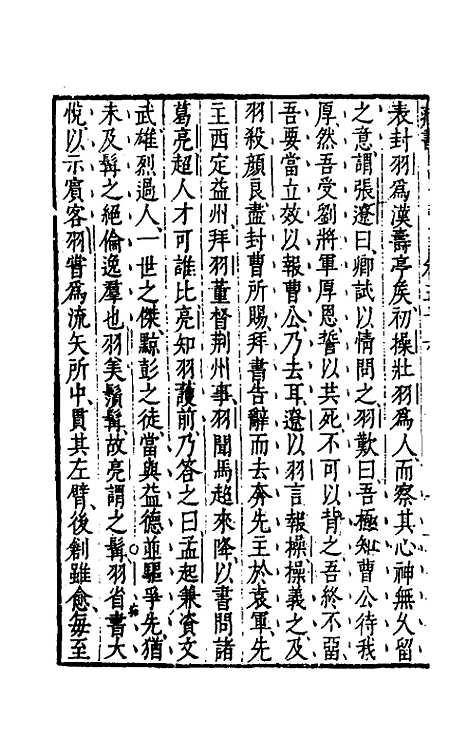 表封羽爲漢壽亭矦初操壯羽爲人而察其心神無久留
之意謂張遼曰卿試以情問之羽歎曰吾極知曹公待我
厚然吾受劉將軍厚恩誓以共死不可以背之吾終不留
吾要當立效以報曹公乃去耳遼以羽言報操操義之及
羽殺顔良盡封曹所賜拜書告辭而去奔先主於袁軍先
主西定益州拜羽董督荆州事羽聞馬超來降以書問諸
葛亮超人才可誰比亮知羽護前乃答之曰孟起兼資文
武雄烈過人一世之傑黥彭之徒當與益德並驅爭先猶
未及髯之絕倫逸羣也羽美鬚髯故亮謂之髯羽省書大
悅以示賓客羽嘗爲流矢所中貫其左臂後創雖愈每至